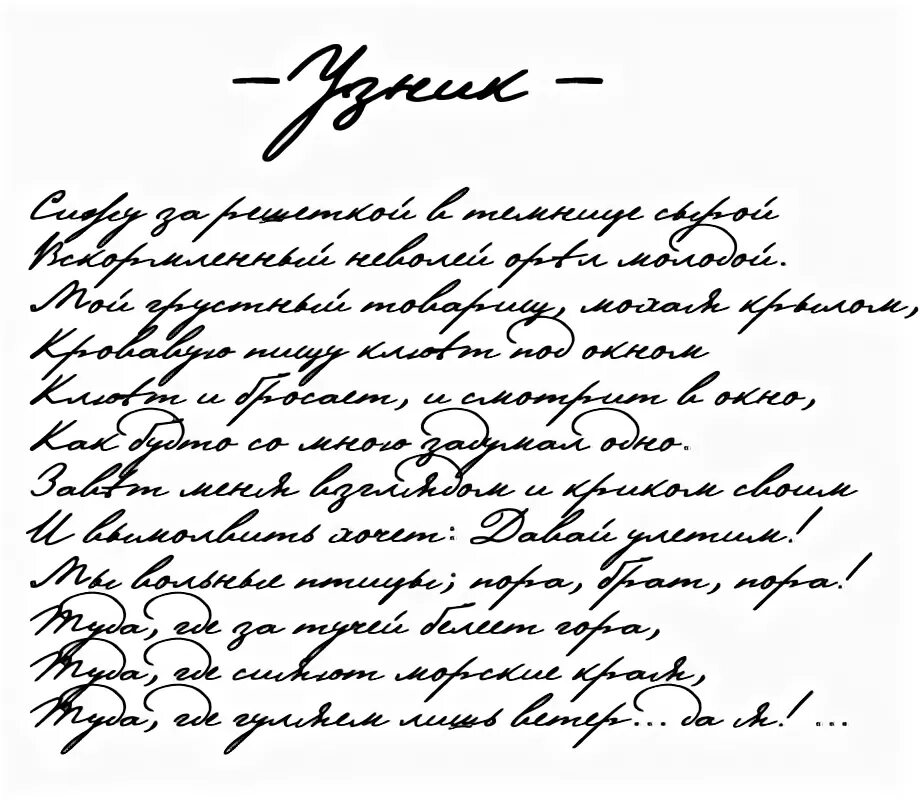 — Узник —
Сижу за решеткой в темнице сырой
Вскормленный неволей орѣл молодой.
Мой грустный товарищ, махая крылом,
Кровавую пищу клюѣт под окном
Клюѣт и бросает, и смотрит в окно,
Как будто со мною задумал одно.
Завѣт меня взглядом и криком своим
И вымолвить хочет: Давай улетим!
Мы вольные птицы; пора, брат, пора!
Туда, где за тучей белеет гора,
Туда, где сияют морские края,
Туда, где гуляем лишь ветер... да я! ...